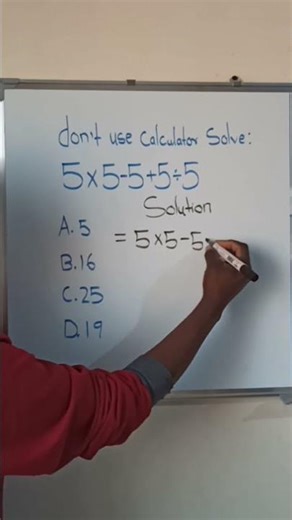 don't use Calculator Solve:
5×5-5+5÷5
Solution
A. 5
= 5×5-5
B. 16
C. 25
D. 19